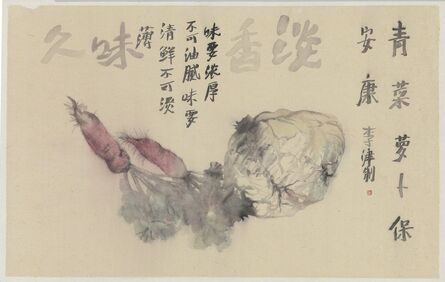 青菜萝卜保
安康
李津制
淡香味久
味要浓厚
不可油腻味要
清鲜不可淡
薄